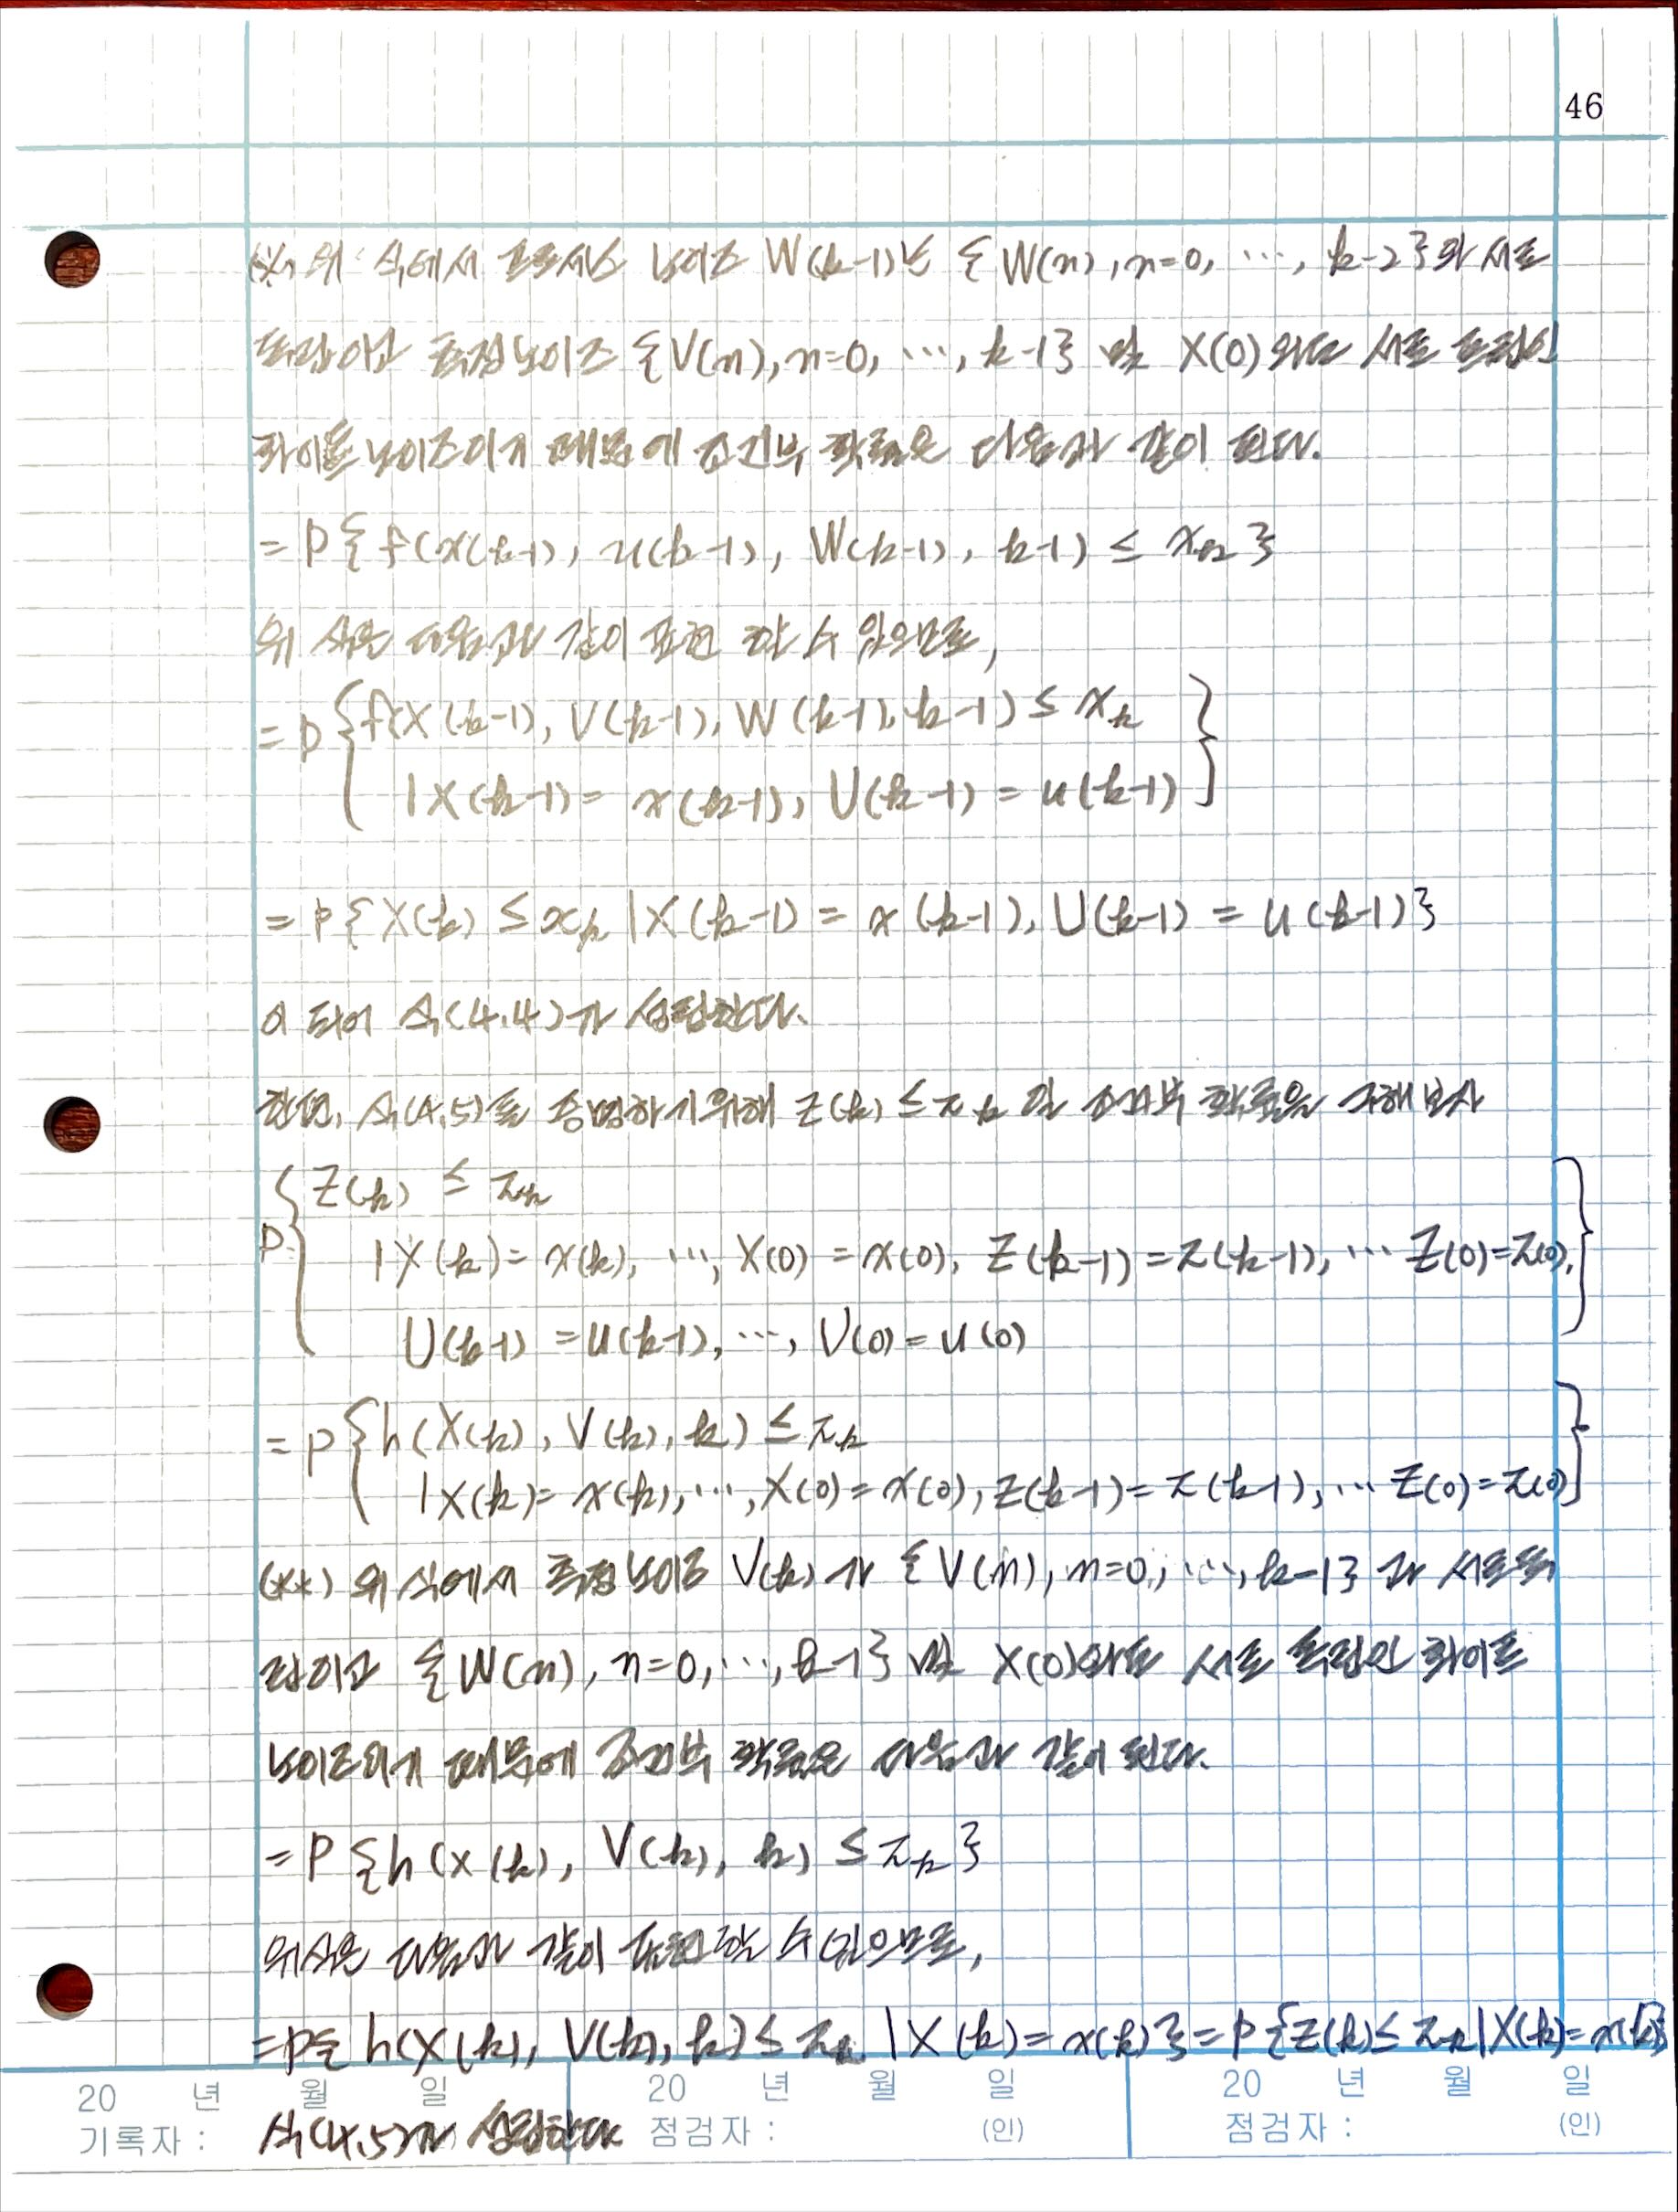 46
(*) 위 식에서 프로세스 노이즈 W(k-1)는 {W(n), n=0, ⋯, k-2}와 서로
독립이고 측정노이즈 {V(n), n=0, ⋯, k-1} 및 X(0)와도 서로 독립인
화이트 노이즈이기 때문에 조건부 확률은 다음과 같이 된다.
= P{f(x(k-1), u(k-1), W(k-1), k-1) ≤ x_k}
위 식은 다음과 같이 표현 할 수 있으므로,
= P{f(X(k-1), U(k-1), W(k-1), k-1) ≤ x_k
|X(k-1) = x(k-1), U(k-1) = u(k-1)}
= P{X(k) ≤ x_k |X(k-1) = x(k-1), U(k-1) = u(k-1)}
이 되어 식(4.4)가 성립한다.
한편, 식(4.5)를 증명하기위해 Z(k) ≤ z_k 인 조건부 확률을 구해보자
P{Z(k) ≤ z_k
|X(k) = x(k), ⋯, X(0) = x(0), Z(k-1) = z(k-1), ⋯ Z(0)=z(0),
U(k-1) = u(k-1), ⋯, U(0) = u(0)}
= P{h(X(k), V(k), k) ≤ z_k
|X(k) = x(k), ⋯, X(0) = x(0), Z(k-1) = z(k-1), ⋯ Z(0) = z(0)}
(**) 위 식에서 측정노이즈 V(k)가 {V(n), n=0, ⋯, k-1}과 서로독
립이고 {W(n), n=0, ⋯, k-1} 및 X(0)와도 서로 독립인 화이트
노이즈이기 때문에 조건부 확률은 다음과 같이 된다.
= P{h(x(k), V(k), k) ≤ z_k}
위식은 다음과 같이 표현할 수 있으므로,
= P{h(X(k), V(k), k) ≤ z_k |X(k) = x(k)} = P{Z(k) ≤ z_k |X(k) = x(k)}
20 년 월 일 20 년 월 일 20 년 월 일
기록자 : 식(4.5)가 성립한다 점검자 : (인) 점검자 : (인)